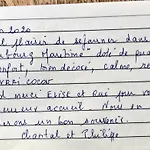 2020
plaisir de séjourner dans
bourg Maritime" doté de
confort, bien décoré, calme,
VRAI COCON
merci Elise et pour
accueil. Nous en
un bon souvenir.
Chantal et Philippe